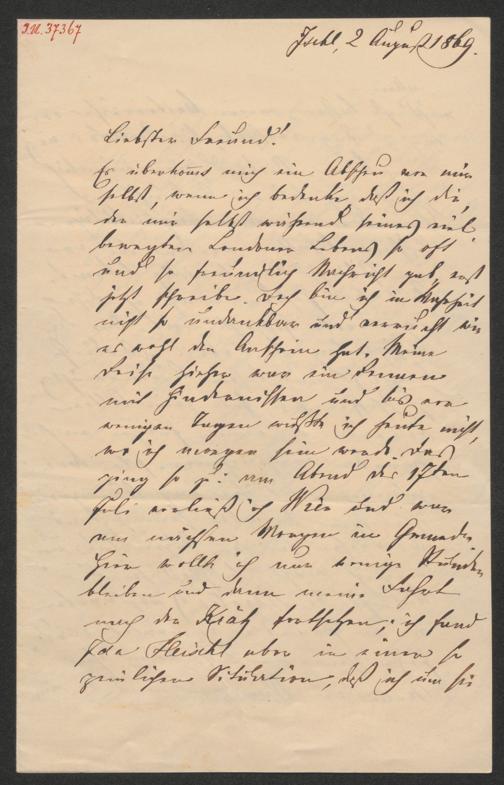 J.N. 37367
Ischl, 2 August 1869.
Liebster Freund!
Es überkommt mich ein Abscheu vor mir
selbst, wenn ich bedenke, daß ich dir,
der mir selbst während seines viel
bewegten Londoner Lebens so oft
und so freundlich Nachricht gab, erst
jetzt schreibe. Doch bin ich in Wahrheit
nicht so undankbar und verrucht wie
es wohl den Anschein hat. Meine
Reise hieher war ein Rennen
mit Hindernissen und bis vor
wenigen Tagen wußte ich heute nicht,
wo ich morgen sein werde. Das
ging so zu: am Abend des 17ten
Juli verließ ich Wien und war
am nächsten Morgen in Gmunden
hier wollte ich nur wenige Stunden
bleiben und dann meine Fahrt
nach der fortsetzen; ich fand
Ida Fleischl aber in einer so
peinlichen Situation, daß ich um sie